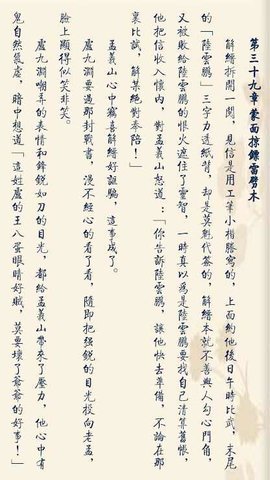 第三十九章 蒙面掠鏢雷劈木
解縉拆開一閱，見信是用工筆小楷謄寫的，上面約他後日午時比武，末尾
的「陸雲鵬」三字力透紙背，却是莫魁代簽的，解縉本就不善與人勾心鬥角，
又被敗給陸雲鵬的恨火遮住了靈智，一時真以為是陸雲鵬要找自己清算舊帳，
他把信收入懷內，對孟義山怒道：「你告訴陸雲鵬，讓他快去準備，不論在那
裏比試，解某絕對奉陪！」
孟義山心中竊喜解縉好誆騙，這事成了。
盧九淵要過那封戰書，漫不經心的看了看，隨即把強銳的目光投向老孟，
臉上顯得似笑非笑。
盧九淵嘲弄的表情和鋒銳如刀的目光，都給孟義山帶來了壓力，他心中有
鬼自然氣虛，暗中想道「這姓盧的王八蛋眼睛好賊，莫要壞了爺爺的好事！」